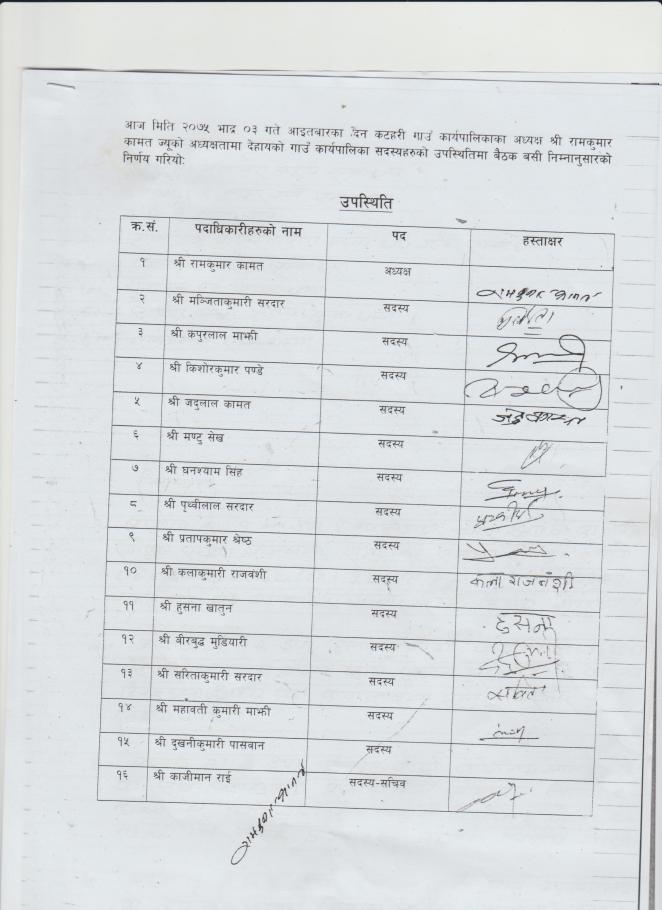 आज मिति २०७५ भाद्र ०३ गते आइतबारका दिन कटहरी गाउँ कार्यपालिकाका अध्यक्ष श्री रामकुमार
कामत ज्यूको अध्यक्षतामा देहायको गाउँ कार्यपालिका सदस्यहरुको उपस्थितिमा बैठक बसी निम्नानुसारको
निर्णय गरियोः
उपस्थिति
क्र.सं. पदाधिकारीहरुको नाम पद हस्ताक्षर
१ श्री रामकुमार कामत अध्यक्ष रामकुमार कामत
२ श्री मञ्जिताकुमारी सरदार सदस्य
३ श्री कपुरलाल माझी सदस्य
४ श्री किशोरकुमार पण्डे सदस्य
५ श्री जदुलाल कामत सदस्य
६ श्री मण्टु सेख सदस्य
७ श्री घनश्याम सिंह सदस्य
८ श्री पृथ्वीलाल सरदार सदस्य
९ श्री प्रतापकुमार श्रेष्ठ सदस्य
१० श्री कलाकुमारी राजवंशी सदस्य कला राजवंशी
११ श्री हुसना खातुन सदस्य हुसना
१२ श्री बीरबुद्ध मुडियारी सदस्य
१३ श्री सरिताकुमारी सरदार सदस्य सरिता
१४ श्री महावती कुमारी माझी सदस्य
१५ श्री दुखनीकुमारी पासवान सदस्य
१६ श्री काजीमान राई सदस्य-सचिव
रामकुमार कामत